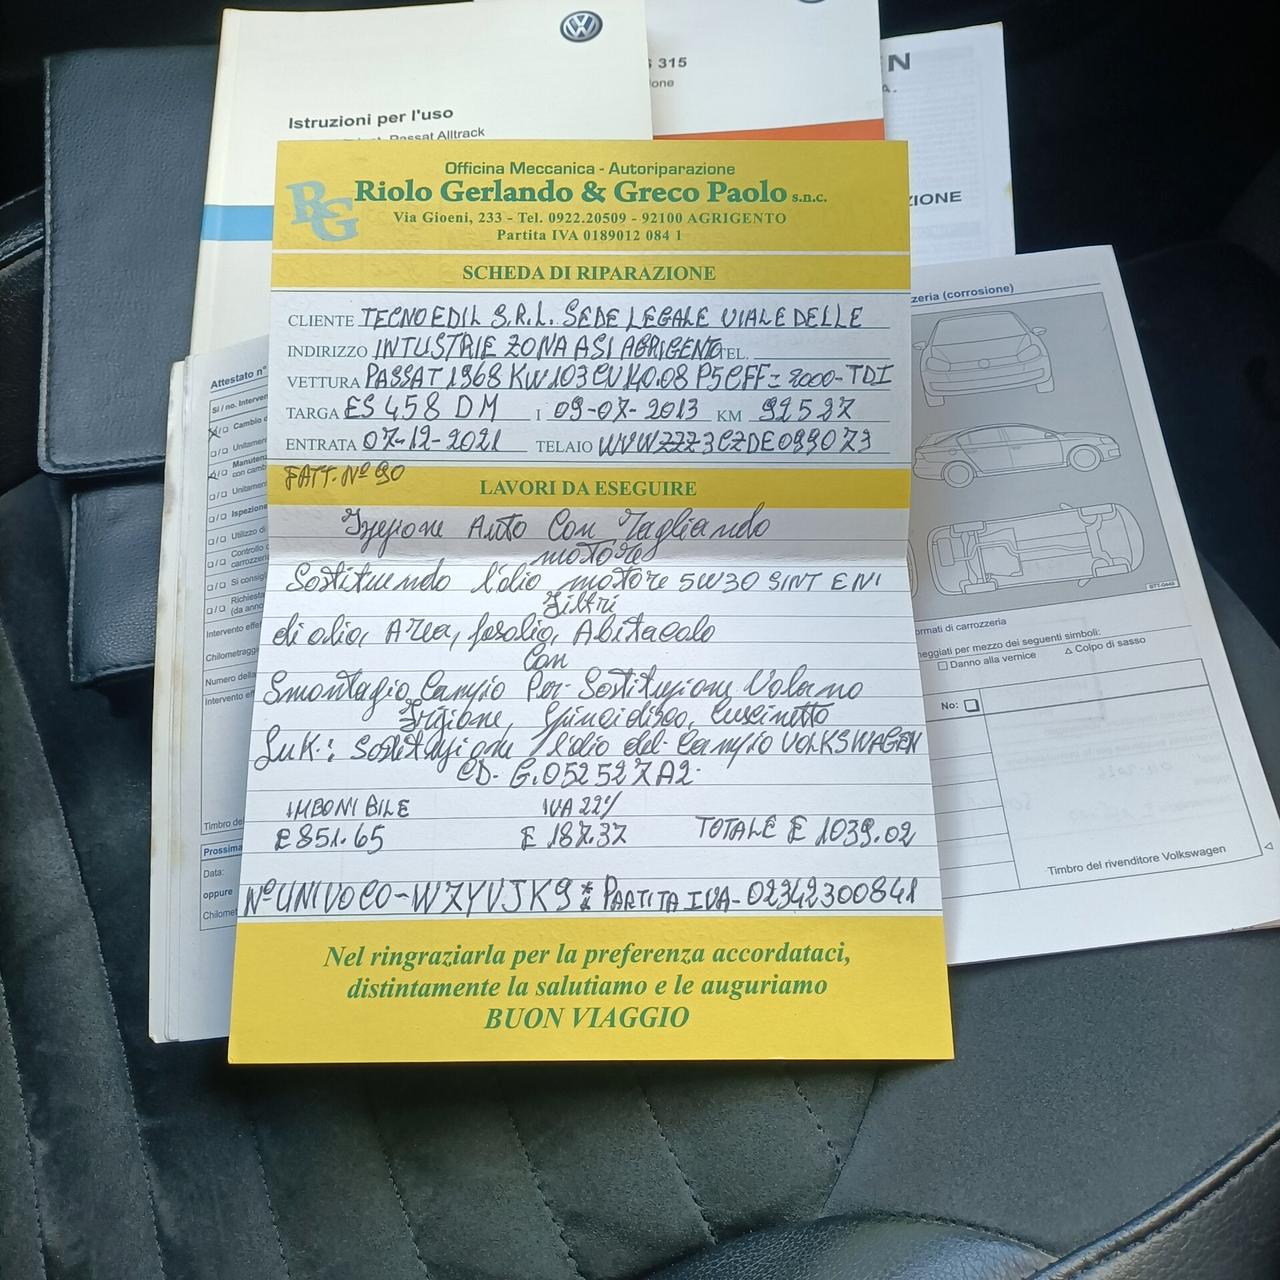 Istruzioni per l'uso
Passat Alltrack
S 315
ione
N
A.
ZIONE
Officina Meccanica - Autoriparazione
RG
Riolo Gerlando & Greco Paolo s.n.c.
Via Gioeni, 233 - Tel. 0922.20509 - 92100 AGRIGENTO
Partita IVA 0189012 084 1
SCHEDA DI RIPARAZIONE
CLIENTE TECNOEDIL S.R.L. SEDE LEGALE VIALE DELLE
INDIRIZZO INTUSTRIE ZONA ASI AGRIGENTO TEL.
VETTURA PASSAT 1968 KW103 CV140.08 P5CFF= 2000-TDI
TARGA ES 458 DM I 09-07-2013 KM 92527
ENTRATA 07-12-2021 TELAIO WVWZZZ3CZDE099073
FATT. Nº 90
LAVORI DA ESEGUIRE
Auto Con Tagliando
motore
Sostituendo l'olio motore 5W30 SINT ENI
Filtri
di olio, Area, gasolio, Abitacolo
Con
Smontagio Per Sostituzione Volano
Frizione, Spincidisco, Cuscinetto
LuK: Sostituzione l'olio del VOLKSWAGEN
CD. G.052527A2.
IMBONIBILE IVA 22%
E 851.65 E 187.37 TOTALE E 1039.02
Nº UNIVOCO-W7YVJK9 * PARTITA IVA-02342300841
Nel ringraziarla per la preferenza accordataci,
distintamente la salutiamo e le auguriamo
BUON VIAGGIO
Attestato n°
Si / no. Interven
Cambio
Unitamen
Manuten
con camb
Unitamen
Ispezione
Utilizzo di
Controllo
carrozzeri
Si consigl
Richiesta
(da anno
Intervento effet
Chilometragg
Numero della
Intervento ef
Timbro de
Prossima
Data:
oppure
Chilomet
zeria (corrosione)
ormati di carrozzeria
neggiati per mezzo dei seguenti simboli:
□ Danno alla vernice △ Colpo di sasso
No: □
Timbro del rivenditore Volkswagen